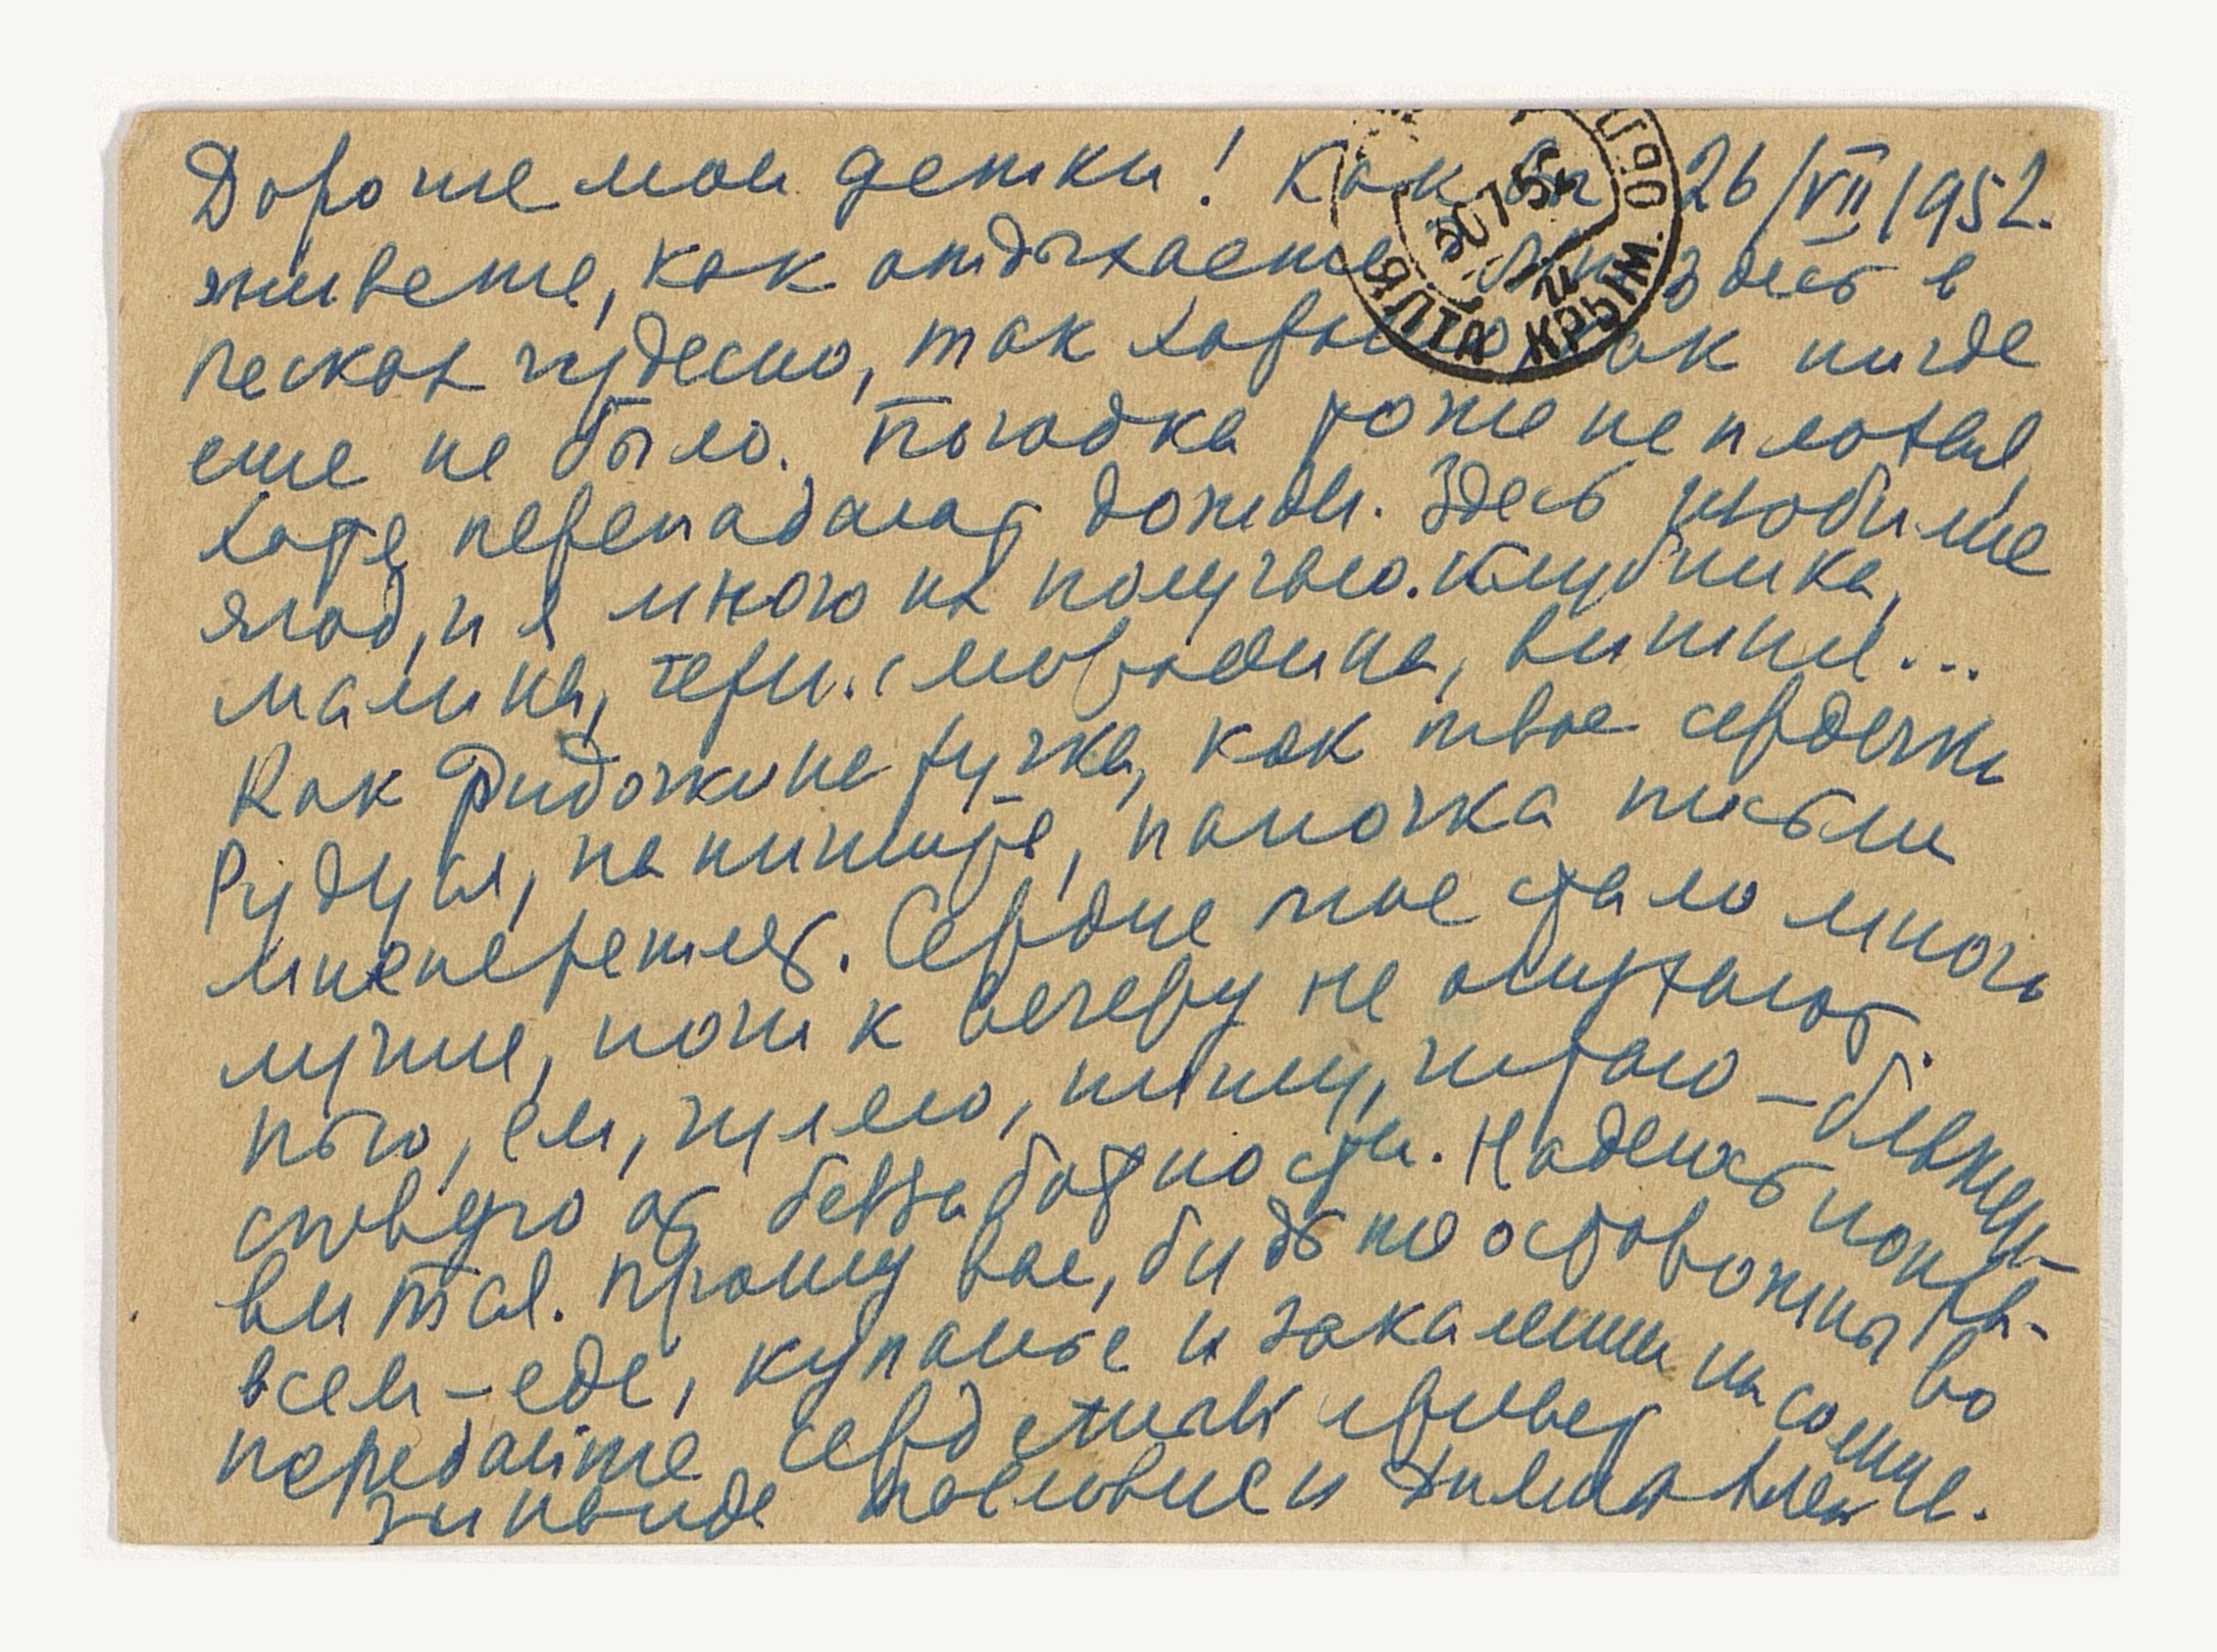 Дорогие мои детки! Как вы 26/VII/1952.
живете, как отдыхаете. Мы здесь в
Песках чудесно, так хорошо, как нигде
еще не было. Погодка тоже не плохая,
хотя перепадают дожди. Здесь изобилие
ягод, и я много их получаю. Клубника,
малина, черн. смородина, вишни...
Как Фидочкина ручка, как твое сердечко
Рудуся, напишите, папочка письмо
мне перешлет. Сердце мое стало много
лучше, ноги к вечеру не опухают.
Пью, ем, гуляю, пишу, читаю – блажен-
ствую от беззаботности. Надеюсь попра-
виться. Прошу вас, будьте осторожны во
всем – еде, купанье и закаляньи на солнце.
Передайте сердечный привет
Зинаиде
ЯЛТА КРЫМ. ОБЛ.
30 7 52